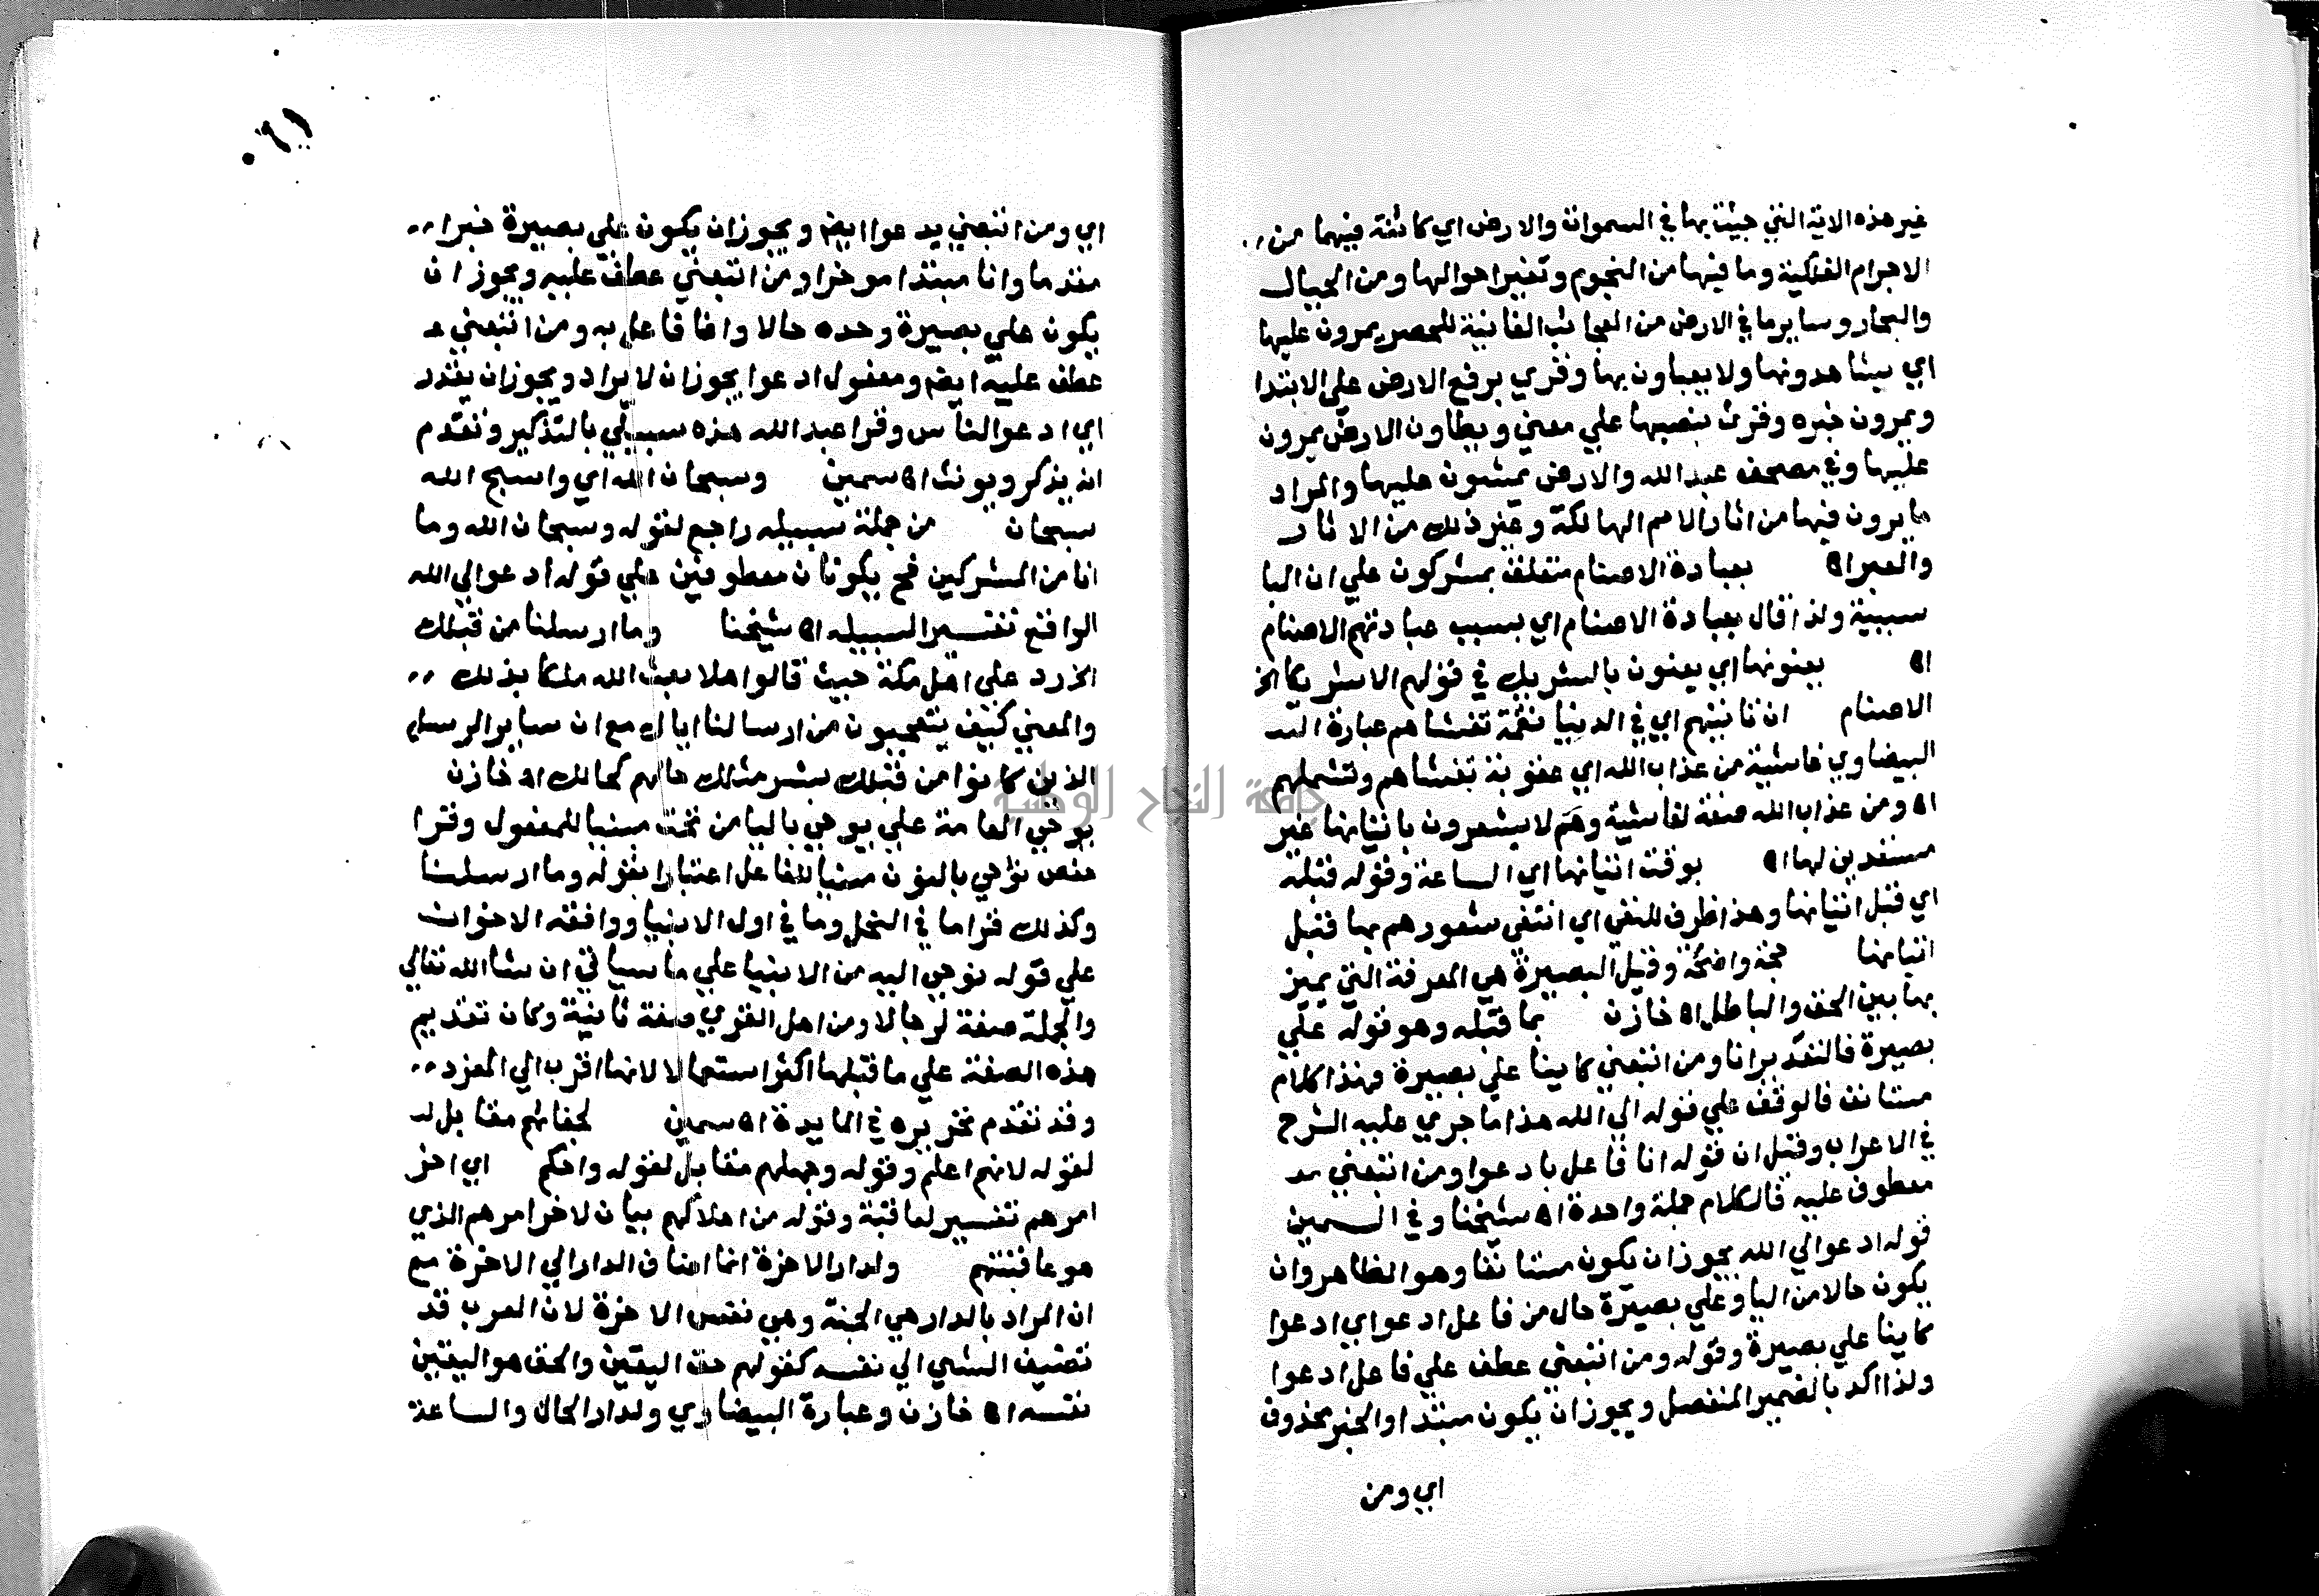 غير هذه الاية التي جيت بها في السموات والارض اي كائنة فيهما من
الاجرام الفلكية وما فيها من النجوم وتغير احوالها ومن الجبال
والبحار وساير ما في الارض من العجائب الفائتة للحصر يمرون عليها
اي يشاهدونها ولا يعباون بها وقري برفع الارض على الابتدا
ويمرون خبره وقرئ بنصبها علي معني ويطاون الارض يمرون
عليها وفي مصحف عبد الله والارض يمشون عليها والمراد
ما يرون فيها من اثار الامم الهالكة وغير ذلك من الاثار
والعبر اه بعبادة الاصنام متعلق بمشركون علي ان البا
سببية ولذا قال بعبادة الاصنام اي بسبب عبادتهم الاصنام
اه يعنونها اي يعنون بالشريك في قولهم الا شريكا الخ
الاصنام ان تاتيهم اي في الدنيا نقمة تغشاهم عبارة
البيضاوي غاشية من عذاب الله اي عقوبة تغشاهم وتشملهم
اه ومن عذاب الله صفة لغاشية وهم لا يشعرون باتيانها غير
مستعدين لها اه بوقت اتيانها اي الساعة وقوله قبله
اي قبل اتيانها وهذا ظرف للنفي اي انتفي شعورهم بها قبل
اتيانها حجة واضحة وقيل البصيرة هي المعرفة التي يميز
بها بين الحق والباطل اه خازن بما قبله وهو قوله علي
بصيرة فالتقدير انا ومن اتبعني كاينا علي بصيرة فهذا كلام
مستانف فالوقف علي قوله الي الله هذا ما جري عليه الشرح
في الاعراب وقيل ان قوله انا فاعل بادعوا ومن اتبعني
معطوف عليه فالكلام جملة واحدة اه شيخنا وفي السمين
قوله ادعوا الي الله يجوز ان يكون مستانفا وهو الظاهر وان
يكون حالا من اليا وعلي بصيرة حال من فاعل ادعوا اي ادعوا
كاينا علي بصيرة وقوله ومن اتبعني عطف علي فاعل ادعوا
ولذا اكد بالضمير المنفصل ويجوز ان يكون مبتدا والخبر محذوف
اي ومن
اي ومن اتبعني يدعوا ايضا ويجوز ان يكون علي بصيرة خبرا
مقدما وانا مبتدا موخرا ومن اتبعني عطف عليه ويجوز ان
يكون علي بصيرة وحده حالا وانا فاعل به ومن اتبعني
عطف عليه ايضا ومفعول ادعوا يجوز ان لا يراد ويجوز ان يقدر
اي ادعو الناس وقرا عبد الله هذه سبيلي بالتذكير وتقدم
انه يذكر ويونث اه سمين وسبحان الله اي واسبح الله
سبحان من جملة سبيله راجع لقوله وسبحان الله وما
انا من المشركين فح يكونان معطوفين علي قوله ادعوا الي الله
الواقع تفسيرا لسبيله اه شيخنا وما ارسلنا من قبلك
الخ رد علي اهل مكة حيث قالوا هلا بعث الله ملكا بذلك
والمعني كيف يتعجبون من ارسالنا اياك مع ان ساير الرسل
الذين كانوا من قبلك بشر مثلك حالهم كحالك اه خازن
يوحي العامة علي يوحي باليا من تحت مبنيا للمفعول وقرا
حفص نوحي بالنون مبنيا للفاعل اعتبارا بقوله وما ارسلنا
وكذلك قرا ما في النحل وما في اول الانبيا ووافقه الاخوان
علي قوله نوحي اليه من الانبيا علي ما سياتي ان شا الله تعالي
والجملة صفة لرجالا ومن اهل القري صفة ثانية وكان تقديم
هذه الصفة علي ما قبلها اكثر استعمالا لانها اقرب الي المفرد
وقد تقدم تحريره في المايدة اه سمين لجفائهم مقابل له
لقوله لانهم اعلم وقوله وجهلهم مقابل لقوله واحكم اي اخر
امرهم تفسير لعاقبة وقوله من اهلاكهم بيان لاخر امرهم الذي
هو عاقبتهم ولدار الاخرة انما اضاف الدار الي الاخرة مع
ان المراد بالدار هي الجنة وهي نفس الاخرة لان العرب قد
تضيف الشي الي نفسه كقولهم حق اليقين والحق هو اليقين
نفسه اه خازن وعبارة البيضاوي ولدار الحال والساعة
جامعة النجاح الوطنية